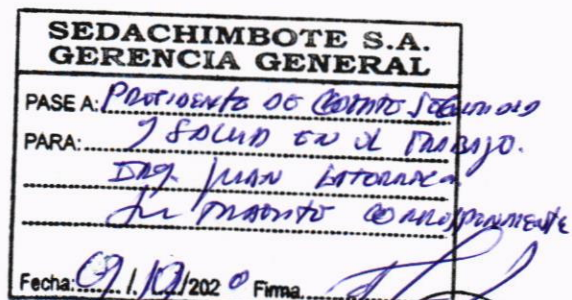 SEDACHIMBOTE S.A.
GERENCIA GENERAL
PASE A: Presidente de Comité Seguridad
PARA: y Salud en el Trabajo.
Ing. Juan
Su trámite correspondiente
Fecha: 09/10/2020 Firma